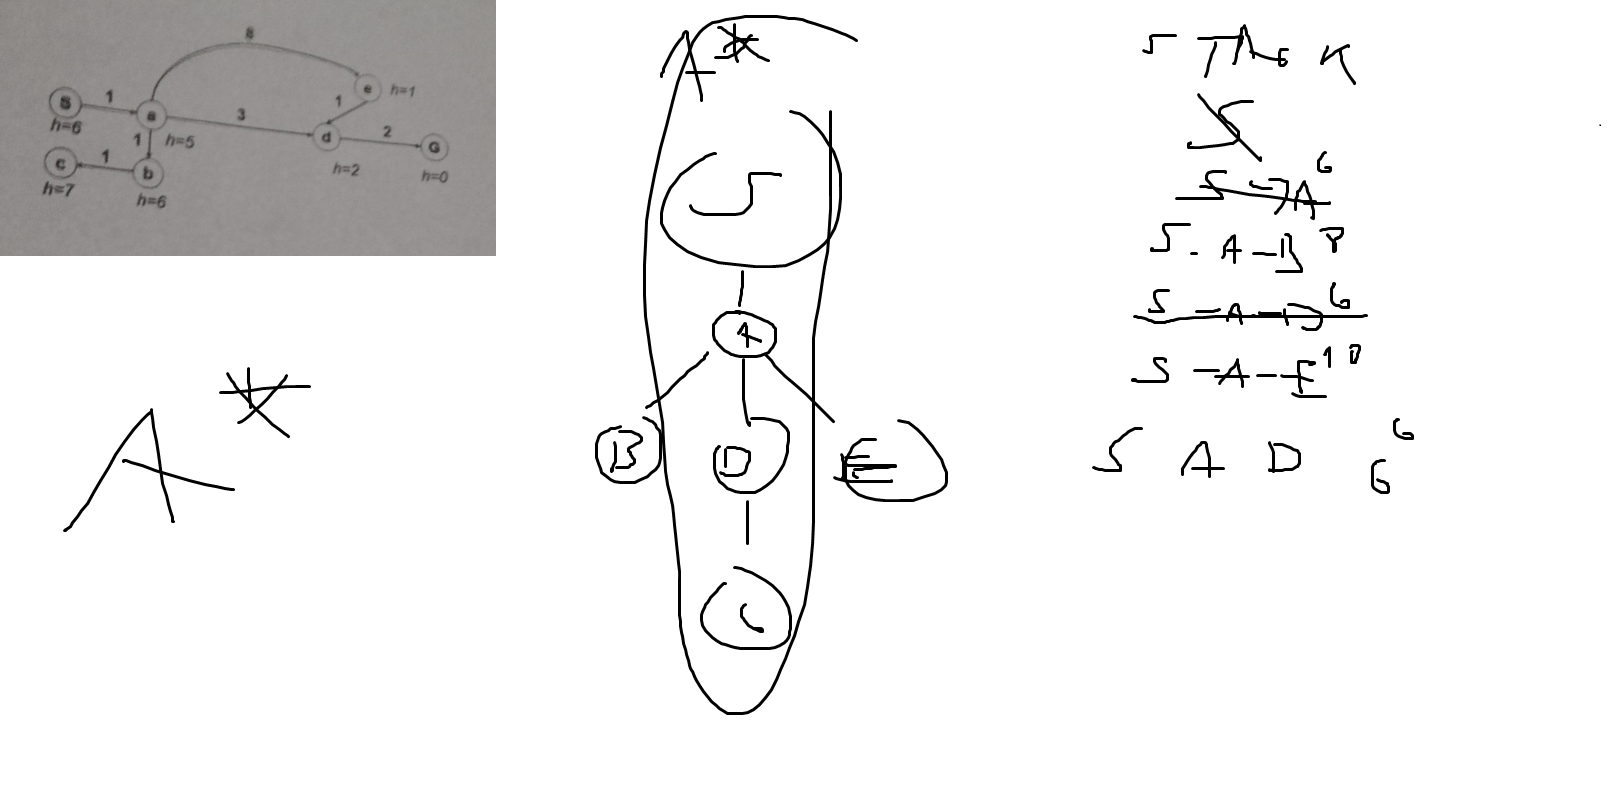 8
e
h=1
S
1
a
3
1
d
2
G
h=6
1
h=5
h=2
h=0
c
1
b
h=7
h=6
A*
A*
S
A
B
D
E
STACK
S
S → A 6
S - A - B 8
S - A - D 6
S - A - E 10
S A D G 6